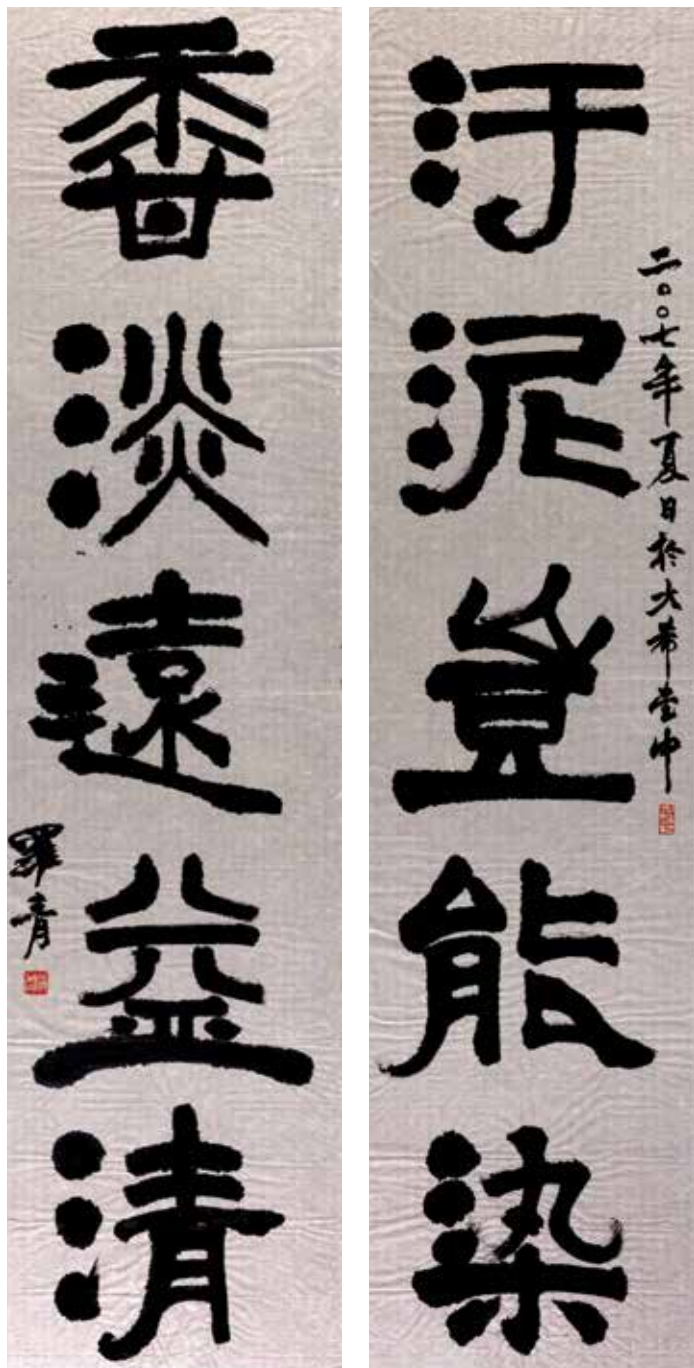 汙泥豈能染
二〇〇七年夏日於大希堂中
香淡遠益清
羅青